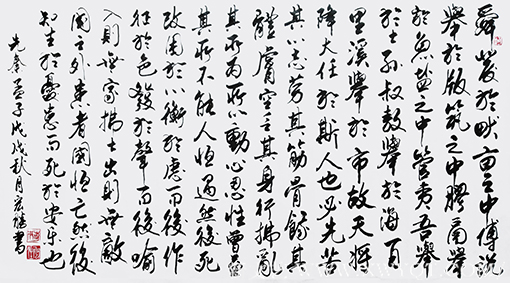 舜發於畎亩之中傅説
舉於版築之中膠鬲舉
於魚鹽之中管夷吾舉
於士孫叔敖舉於海百
里溪舉於市故天將
降大任於斯人也必先苦
其心志勞其筋骨餓其
體膚空乏其身行拂亂
其所為所以動心忍性曾益
其所不能人恒過然後能
改困於心衡於慮而後作
征於色發於聲而後喻
入則無家拂士出則無敵
國之外患者國恒亡然後
知生於憂患而死於安樂也
先秦孟子戊戌秋月書